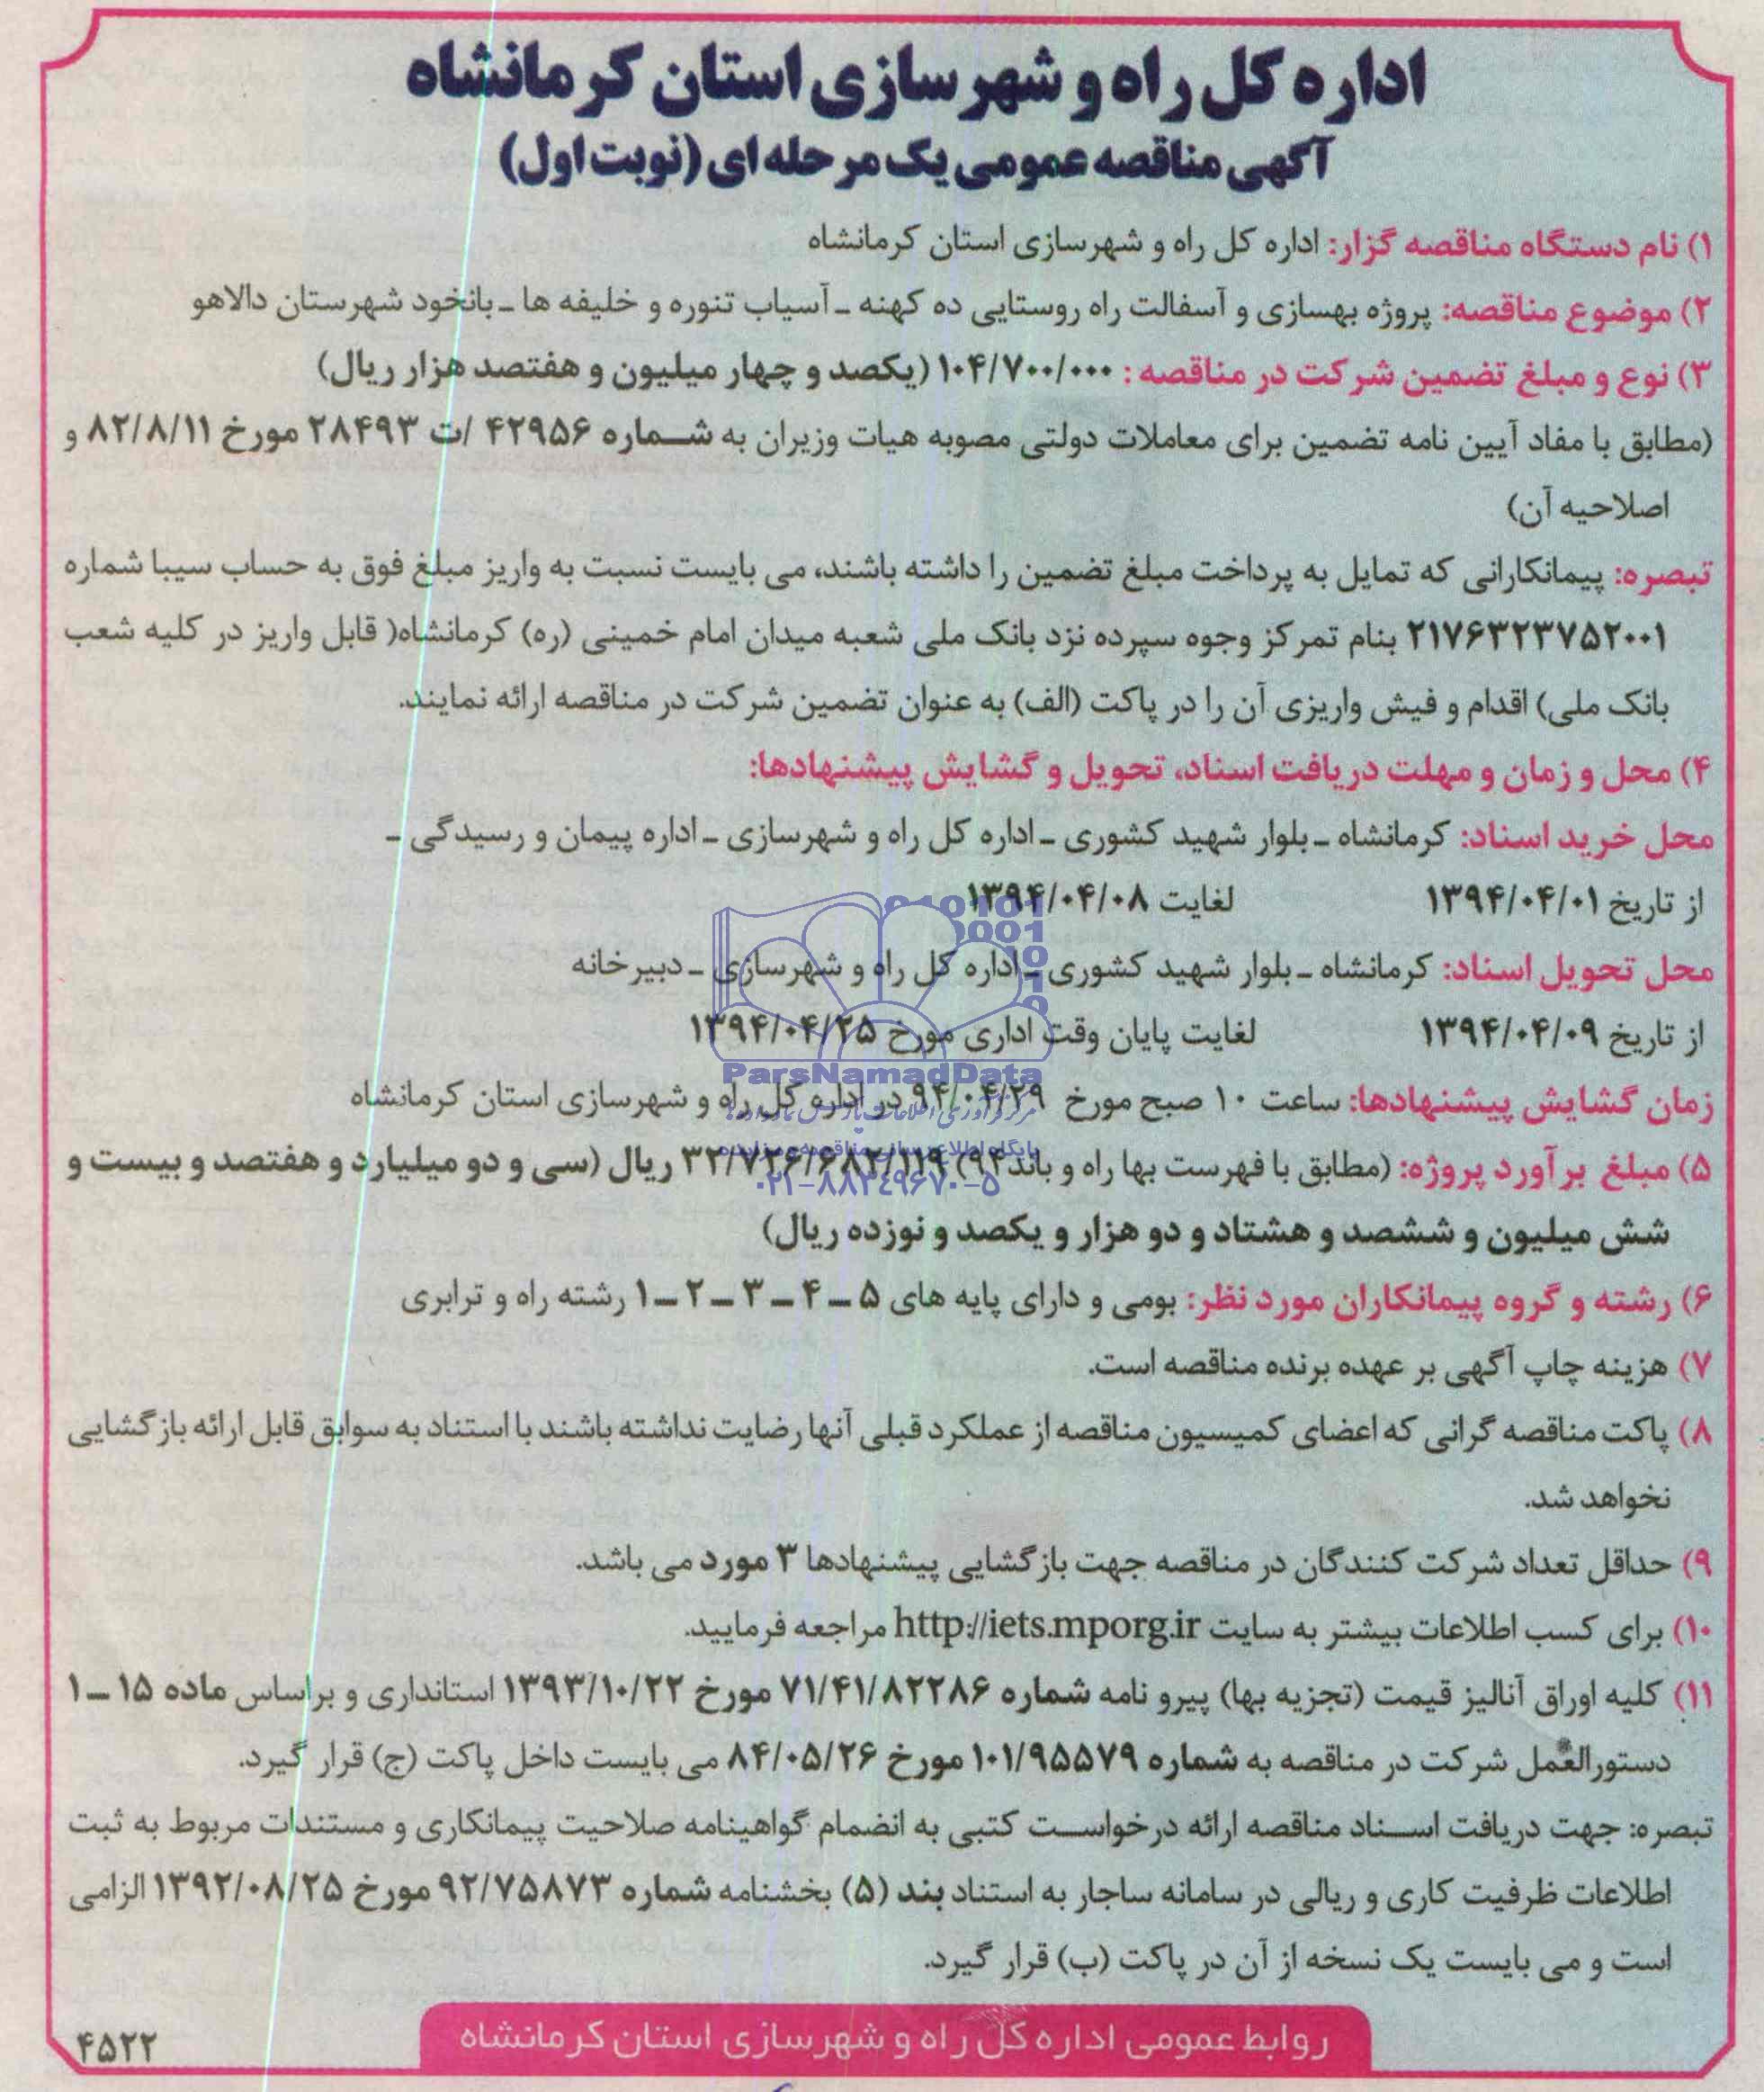 اداره کل راه و شهرسازی استان کرمانشاه
آگهی مناقصه عمومی یک مرحله ای (نوبت اول)
۱) نام دستگاه مناقصه گزار: اداره کل راه و شهرسازی استان کرمانشاه
۲) موضوع مناقصه: پروژه بهسازی و آسفالت راه روستایی ده کهنه ـ آسیاب تنوره و خلیفه ها ـ بانخود شهرستان دالاهو
۳) نوع و مبلغ تضمین شرکت در مناقصه : ۱۰۴/۷۰۰/۰۰۰ (یکصد و چهار میلیون و هفتصد هزار ریال)
(مطابق با مفاد آیین نامه تضمین برای معاملات دولتی مصوبه هیات وزیران به شماره ۴۲۹۵۶ /ت ۲۸۴۹۳ مورخ ۸۲/۸/۱۱ و
اصلاحیه آن)
تبصره: پیمانکارانی که تمایل به پرداخت مبلغ تضمین را داشته باشند، می بایست نسبت به واریز مبلغ فوق به حساب سیبا شماره
۲۱۷۶۳۲۳۷۵۲۰۰۱ بنام تمرکز وجوه سپرده نزد بانک ملی شعبه میدان امام خمینی (ره) کرمانشاه( قابل واریز در کلیه شعب
بانک ملی) اقدام و فیش واریزی آن را در پاکت (الف) به عنوان تضمین شرکت در مناقصه ارائه نمایند.
۴) محل و زمان و مهلت دریافت اسناد، تحویل و گشایش پیشنهادها:
محل خرید اسناد: کرمانشاه ـ بلوار شهید کشوری ـ اداره کل راه و شهرسازی ـ اداره پیمان و رسیدگی ـ
از تاریخ ۱۳۹۴/۰۴/۰۱ لغایت ۱۳۹۴/۰۴/۰۸
محل تحویل اسناد: کرمانشاه ـ بلوار شهید کشوری ـ اداره کل راه و شهرسازی ـ دبیرخانه
از تاریخ ۱۳۹۴/۰۴/۰۹ لغایت پایان وقت اداری مورخ ۱۳۹۴/۰۴/۲۵
ParsNamadData
زمان گشایش پیشنهادها: ساعت ۱۰ صبح مورخ ۹۴/۰۴/۲۹ در اداره کل راه و شهرسازی استان کرمانشاه
۵) مبلغ برآورد پروژه: (مطابق با فهرست بها راه و باند۹۴) ۳۲/۷۲۶/۶۸۲/۱۱۹ ریال (سی و دو میلیارد و هفتصد و بیست و
۰۲۱-۸۸۳۴۹۶۷۰-۵
شش میلیون و ششصد و هشتاد و دو هزار و یکصد و نوزده ریال)
۶) رشته و گروه پیمانکاران مورد نظر: بومی و دارای پایه های ۵ ـ ۴ ـ ۳ ـ ۲ ـ ۱ رشته راه و ترابری
۷) هزینه چاپ آگهی بر عهده برنده مناقصه است.
۸) پاکت مناقصه گرانی که اعضای کمیسیون مناقصه از عملکرد قبلی آنها رضایت نداشته باشند با استناد به سوابق قابل ارائه بازگشایی
نخواهد شد.
۹) حداقل تعداد شرکت کنندگان در مناقصه جهت بازگشایی پیشنهادها ۳ مورد می باشد.
۱۰) برای کسب اطلاعات بیشتر به سایت http://iets.mporg.ir مراجعه فرمایید.
۱۱) کلیه اوراق آنالیز قیمت (تجزیه بها) پیرو نامه شماره ۷۱/۴۱/۸۲۲۸۶ مورخ ۱۳۹۳/۱۰/۲۲ استانداری و براساس ماده ۱۵ ـ ۱
دستورالعمل شرکت در مناقصه به شماره ۱۰۱/۹۵۵۷۹ مورخ ۸۴/۰۵/۲۶ می بایست داخل پاکت (ج) قرار گیرد.
تبصره: جهت دریافت اسناد مناقصه ارائه درخواست کتبی به انضمام گواهینامه صلاحیت پیمانکاری و مستندات مربوط به ثبت
اطلاعات ظرفیت کاری و ریالی در سامانه ساجار به استناد بند (۵) بخشنامه شماره ۹۲/۷۵۸۷۳ مورخ ۱۳۹۲/۰۸/۲۵ الزامی
است و می بایست یک نسخه از آن در پاکت (ب) قرار گیرد.
روابط عمومی اداره کل راه و شهرسازی استان کرمانشاه
۴۵۲۲